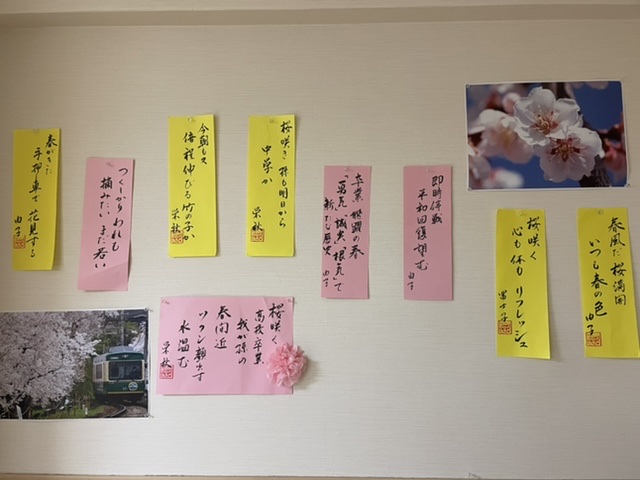 春がきた
手押し車で 花見する
由子
つくしかり われも
摘みたい まだ若い
今朝も又
倍程伸びる 竹の子か
栄秋
桜咲き 孫も明日から
中学か
栄秋
卒業 飛躍の春
「勇気 誠実 根気」で
新たな歴史
由子
即時停戦
平和回復望む
由子
桜咲く
心も体も リフレッシュ
冨士子
春風だ 桜満開
いつも春の色
由子
桜咲く
高校卒業
我が孫の
春間近
ツクシ顔出す
水温む
栄秋